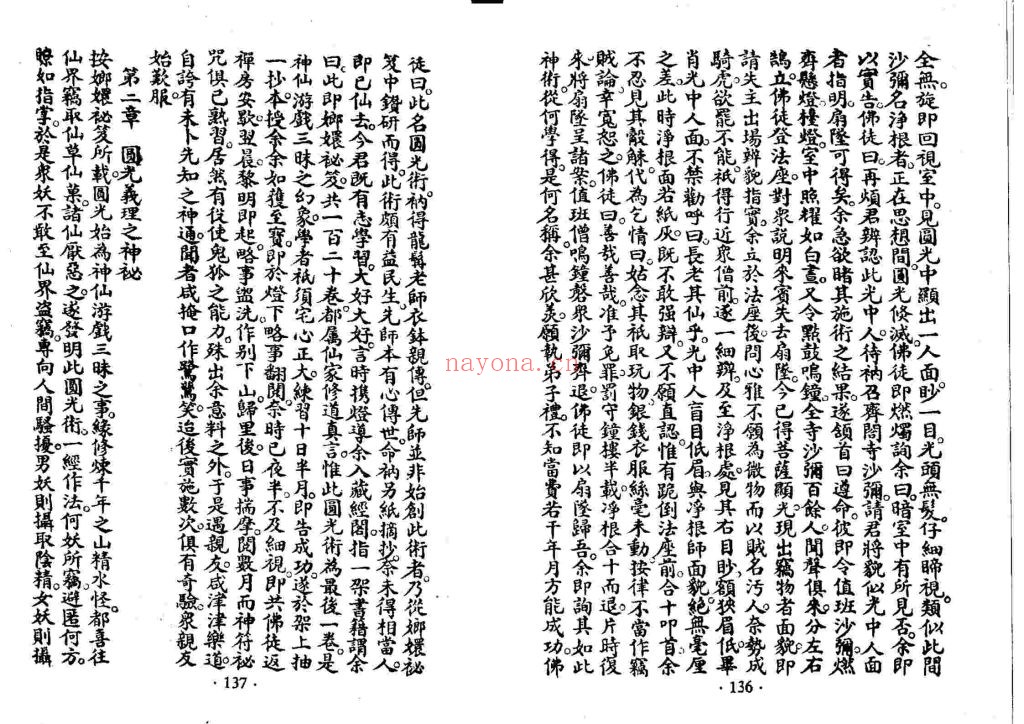 全無。旋即回視室中。見圓光中顯出一人面。眇一目。光頭無髮。仔細睇視。類似此間
沙彌名淨根者。正在思想間。圓光倏滅。佛徒即燃燭詢余曰。暗室中有所見否。余即
以實告。佛徒曰。再煩君辨認此光中人。待衲召齊閤寺沙彌。請君將貌似光中人面
者指明。扇墜可得矣。余急欲睹其施術之結果。遂頷首曰。遵命。彼即令值班沙彌燃
齊懸燈檯燈。室中照耀如白晝。又令點鼓鳴鐘。全寺沙彌百餘人聞聲俱來。分左右
鵠立。佛徒登法座。對衆說明來賓失去扇墜。今已得菩薩顯光。現出竊物者面貌。即
請失主出場辨貌指實。余立於法座後。問心雅不願為微物而以賊名污人。奈勢成
騎虎。欲罷不能。祇得行近衆僧前。逐一細辨。及至淨根處。見其右目眇。額狹眉低。畢
肖光中人面。不禁勸呼曰。長老其仙乎。光中人盲目低眉。與淨根師面貌。絕無毫厘
之差。此時淨根面若紙灰。既不敢强辯。又不願直認。惟有跪倒法座前。合十叩首。余
不忍見其觳觫。代為乞情曰。姑念其祇取玩物。銀錢衣服絲毫未動。按律不當作竊
賊論。幸寬恕之。佛徒曰。善哉善哉。准予免罪。罰守鐘樓半載。淨根合十而退。片時復
來。將扇墜呈諸案。值班僧鳴鐘磬。衆沙彌齊退。佛徒即以扇墜歸吾。余即詢其如此
神術。從何學得。是何名稱。余甚欣羨。願執弟子禮。不知當費若干年月。方能成功。佛
·136·
徒曰。此名圓光術。衲得龍髯老師衣鉢親傳。但先師並非始創此術者。乃從嫏嬛祕
笈中鑽研而得。此術頗有益民生。先師本有心傳世。命衲另紙摘抄。奈未得相當人
即已仙去。今君既有志學習。大好大好。言時。攜燈導余入藏經閣。指一架書籍謂余
曰。此即嫏嬛祕笈。共一百二十卷。都屬仙家修道真言。惟此圓光術為最後一卷。是
神仙游戲三昧之幻象。學者祇須宅心正大。練習十日半月。即告成功。遂於架上抽
一抄本授余。余如獲至寶。即於燈下略事翻閱。奈時已夜半。不及細視。即共佛徒返
禪房安歇。翌晨黎明即起。略事盥洗。作别下山。歸里後。日事揣摩。閱數月而神符祕
咒俱已熟習。居然有役使鬼狐之能力。殊出余意料之外。于是遇親友。咸津津樂道
自誇有未卜先知之神通。聞者咸掩口作鷺鷥笑。迨後實施數次。俱有奇驗。衆親友
始歎服。
第二章 圓光義理之神祕
按嫏嬛祕笈所載。圓光始為神仙游戲三昧之事。緣修煉千年之山精水怪。都喜往
仙界竊取仙草仙菓。諸仙厭惡之。遂發明此圓光術。一經作法。何妖所竊。避匿何方。
瞭如指掌。於是衆妖不敢至仙界盗竊。專向人間騷擾。男妖則攝取陰精。女妖則攝
·137·
nayona.cn